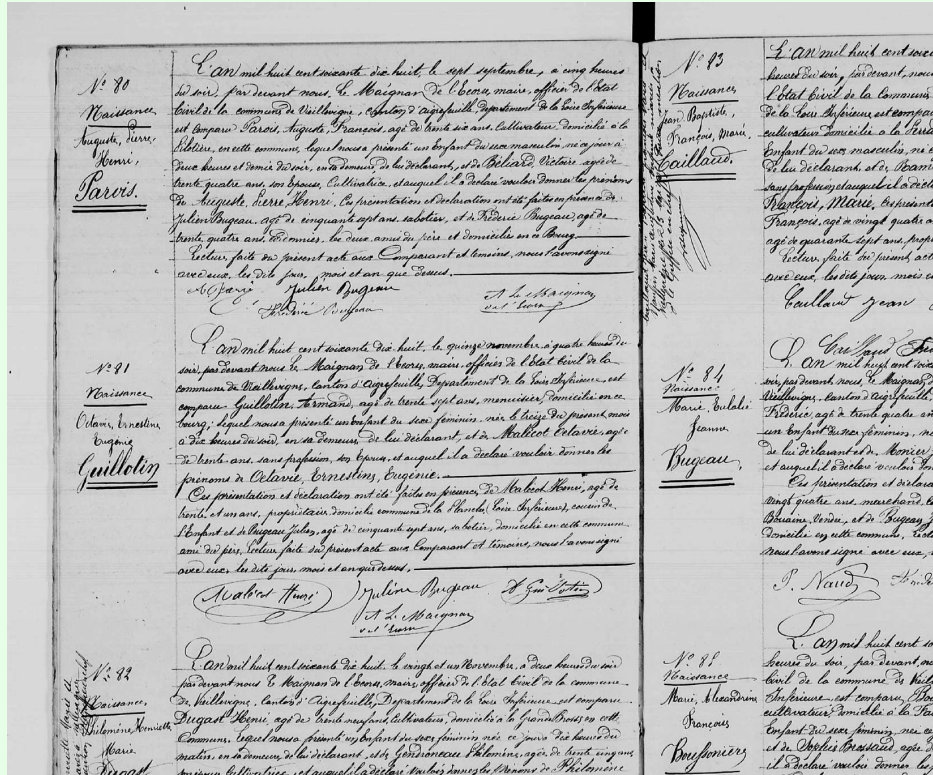 Nº 80
Naissance
Auguste, Pierre,
Henri,
Parois.
L'an mil huit cent soixante dix huit, le sept septembre, à cinq heures
du soir, par devant nous, Le Maignan de l'Ecorse, maire, officier de l'état
Civil de la commune de Vieillevigne, canton d'aigrefeuille, département de la Loire Inférieure
est comparu Parois, Auguste, François, agé de trente six ans, Cultivateur, domicilié à la
en cette commune, lequel nous a présenté un Enfant du sexe masculin, né ce jour à
deux heures et demie du soir, en sa demeure, de lui déclarant, et de Béliard, Victoire, agée de
trente quatre ans, son Epouse, Cultivatrice, et auquel il a déclaré vouloir donner les prénoms
de Auguste, Pierre, Henri, Ces présentation et déclaration ont été faites en présence de
Julien Bugeau, agé de cinquante sept ans, sabotier, et de Frédéric Bugeau, agé de
trente quatre ans, les deux amis du père et domiciliés en ce Bourg.
Lecture faite du présent acte aux Comparant et témoins, nous l'avons signé
avec eux, les dits jour, mois et an que dessus.
Julien Bugeau
A Le Maignan
de l'Ecorse
Frédéric Bugeau
Nº 81
Naissance
Octavie, Ernestine,
Eugénie
Guillotin
L'an mil huit cent soixante dix huit, le quinze novembre, à quatre heures du
soir, par devant nous Le Maignan de l'Ecorse, maire, officier de l'Etat Civil de la
commune de Vieillevigne, canton d'Aigrefeuille, Département de la Loire Inférieure, est
comparu Guillotin, Armand, agé de trente sept ans, menuisier, domicilié en ce
bourg, lequel nous a présenté un Enfant du sexe féminin, née le treize du présent mois
à dix heures du soir, en sa demeure, de lui déclarant, et de Malicot Octavie, agée
de trente ans, sans profession, son Epouse, et auquel il a déclaré vouloir donner les
prénoms de Octavie, Ernestine, Eugénie.
Ces présentation et déclaration ont été faites en présence de Malicot Henri, agé de
trente et un ans, propriétaire, domicilié commune de la Planche, (Loire Inférieure), cousin de
l'Enfant et de Bugeau Julien, agé de cinquante sept ans, sabotier, domicilié en cette commune
ami du père, Lecture faite du présent acte aux Comparant et témoins, nous l'avons signé
avec eux, les dits jour, mois et an que dessus.
Malicot Henri
Julien Bugeau
A Guillotin
A Le Maignan
de l'Ecorse
Nº 82
Naissance
Philomène, Henriette
Marie
Dugast
L'an mil huit cent soixante dix huit, le vingt et un Novembre, à deux heures du soir
par devant nous Le Maignan de l'Ecorse, maire, officier de l'Etat Civil de la commune
de Vieillevigne, canton d'Aigrefeuille, Département de la Loire Inférieure est comparu
Dugast Henri, agé de trente neuf ans, Cultivateur, domicilié à la Grand en cette
Commune, lequel nous a présenté un Enfant du sexe féminin née ce jour à dix heures du
matin, en sa demeure, de lui déclarant, et de Gendronneau Philomène, agée de trente cinq ans,
Cultivatrice, et auquel il a déclaré vouloir donner les prénoms de Philomène
Nº 83
Naissance
Jean Baptiste,
François, Marie
Caillaud.
L'an mil huit cent soix
heures du soir, par devant, nous
l'Etat Civil de la Commune
de la Loire Inférieure est compar
cultivateur domicilié à la
Enfant du sexe masculin, né
de lui déclarant, et de
sans profession et auquel il a décl
François, Marie, Ces présent
François, agé de vingt quatre a
agé de quarante sept ans, prop
Lecture faite du présent act
avec eux, les dits jour, mois e
Caillaud Jean
Nº 84
Naissance
Marie, Eulalie
Jeanne
Bugeau
L'an mil huit cent soix
soir, par devant, nous, Le Maignan d
Vieillevigne, Canton d'Aigrefeuille
Frédéric, agé de trente quatre an
un Enfant du sexe féminin, né
de lui déclarant et de Monier
et auquel il a déclaré vouloir don
Ces présentation et déclara
vingt quatre ans, marchand,
Vendée, et de Bugeau J
domicilié en cette commune, Lect
nous l'avons signé avec eux,
P. Naud
Nº 85
Naissance
Marie, Alexandrine
François
L'an mil huit cent so
heures du soir, par devant, no
Civil de la commune de Vieil
Inférieure est comparu,
cultivateur domicilié à la
Enfant du sexe féminin née ce
et de Sophie agée d
il a déclaré vouloir donner les